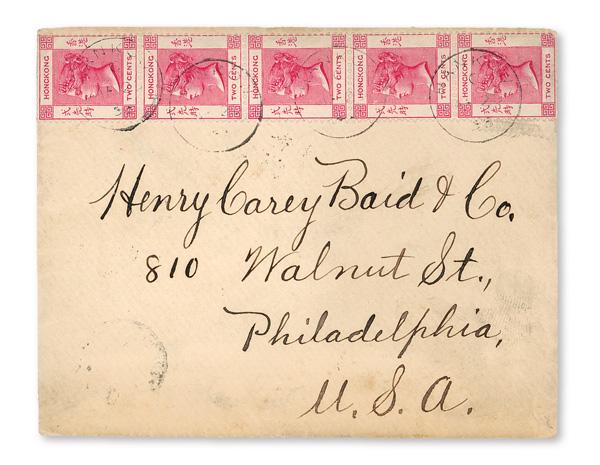 香港 香港 香港 香港 香港
HONGKONG TWO CENTS HONGKONG TWO CENTS HONGKONG TWO CENTS HONGKONG TWO CENTS HONGKONG TWO CENTS
Henry Carey Baid & Co.
810 Walnut St.,
Philadelphia,
U. S. A.